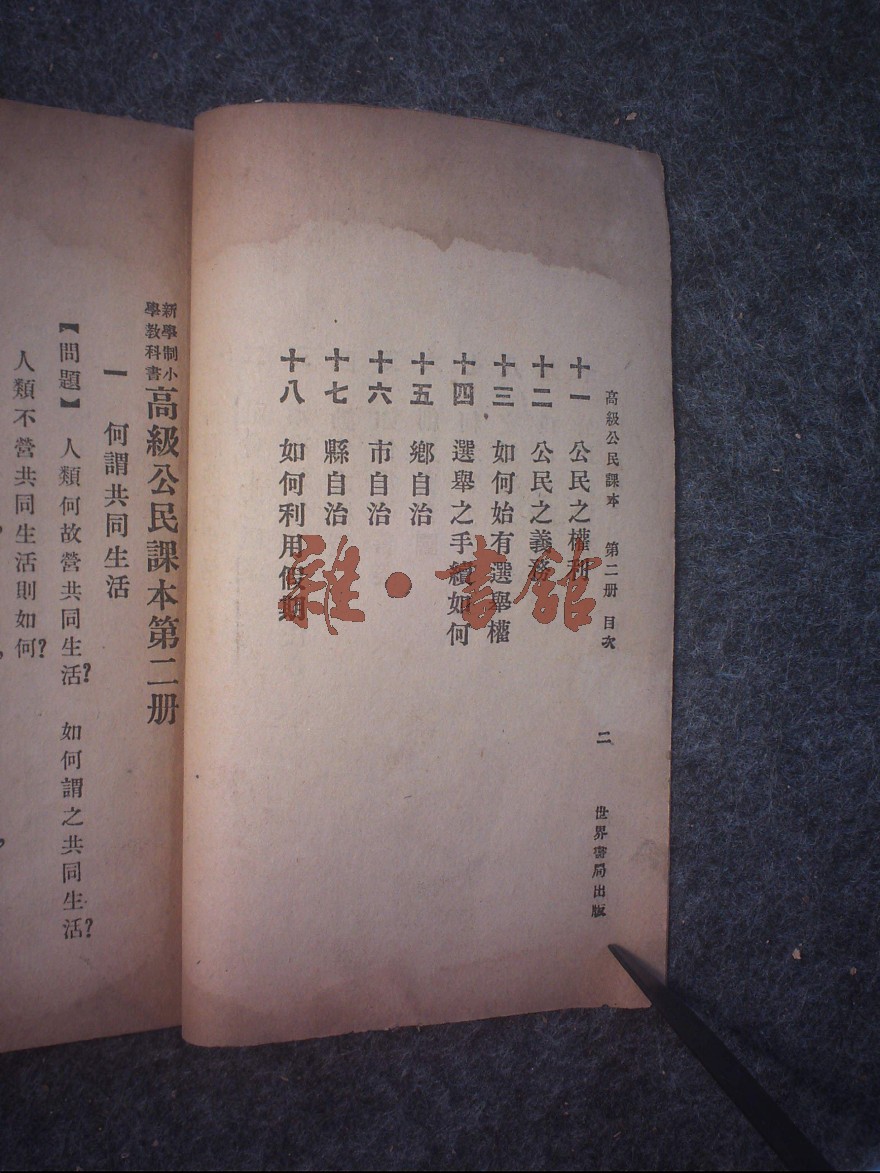 高級公民課本 第二册 目次 二 世界書局出版
十一 公民之權利
十二 公民之義務
十三 如何始有選舉權
十四 選舉之手續如何
十五 鄉自治
十六 市自治
十七 縣自治
十八 如何利用假期
新學制小學教科書高級公民課本第二册
一 何謂共同生活
【問題】人類何故營共同生活? 如何謂之共同生活?
人類不營共同生活則如何?
雜·書館